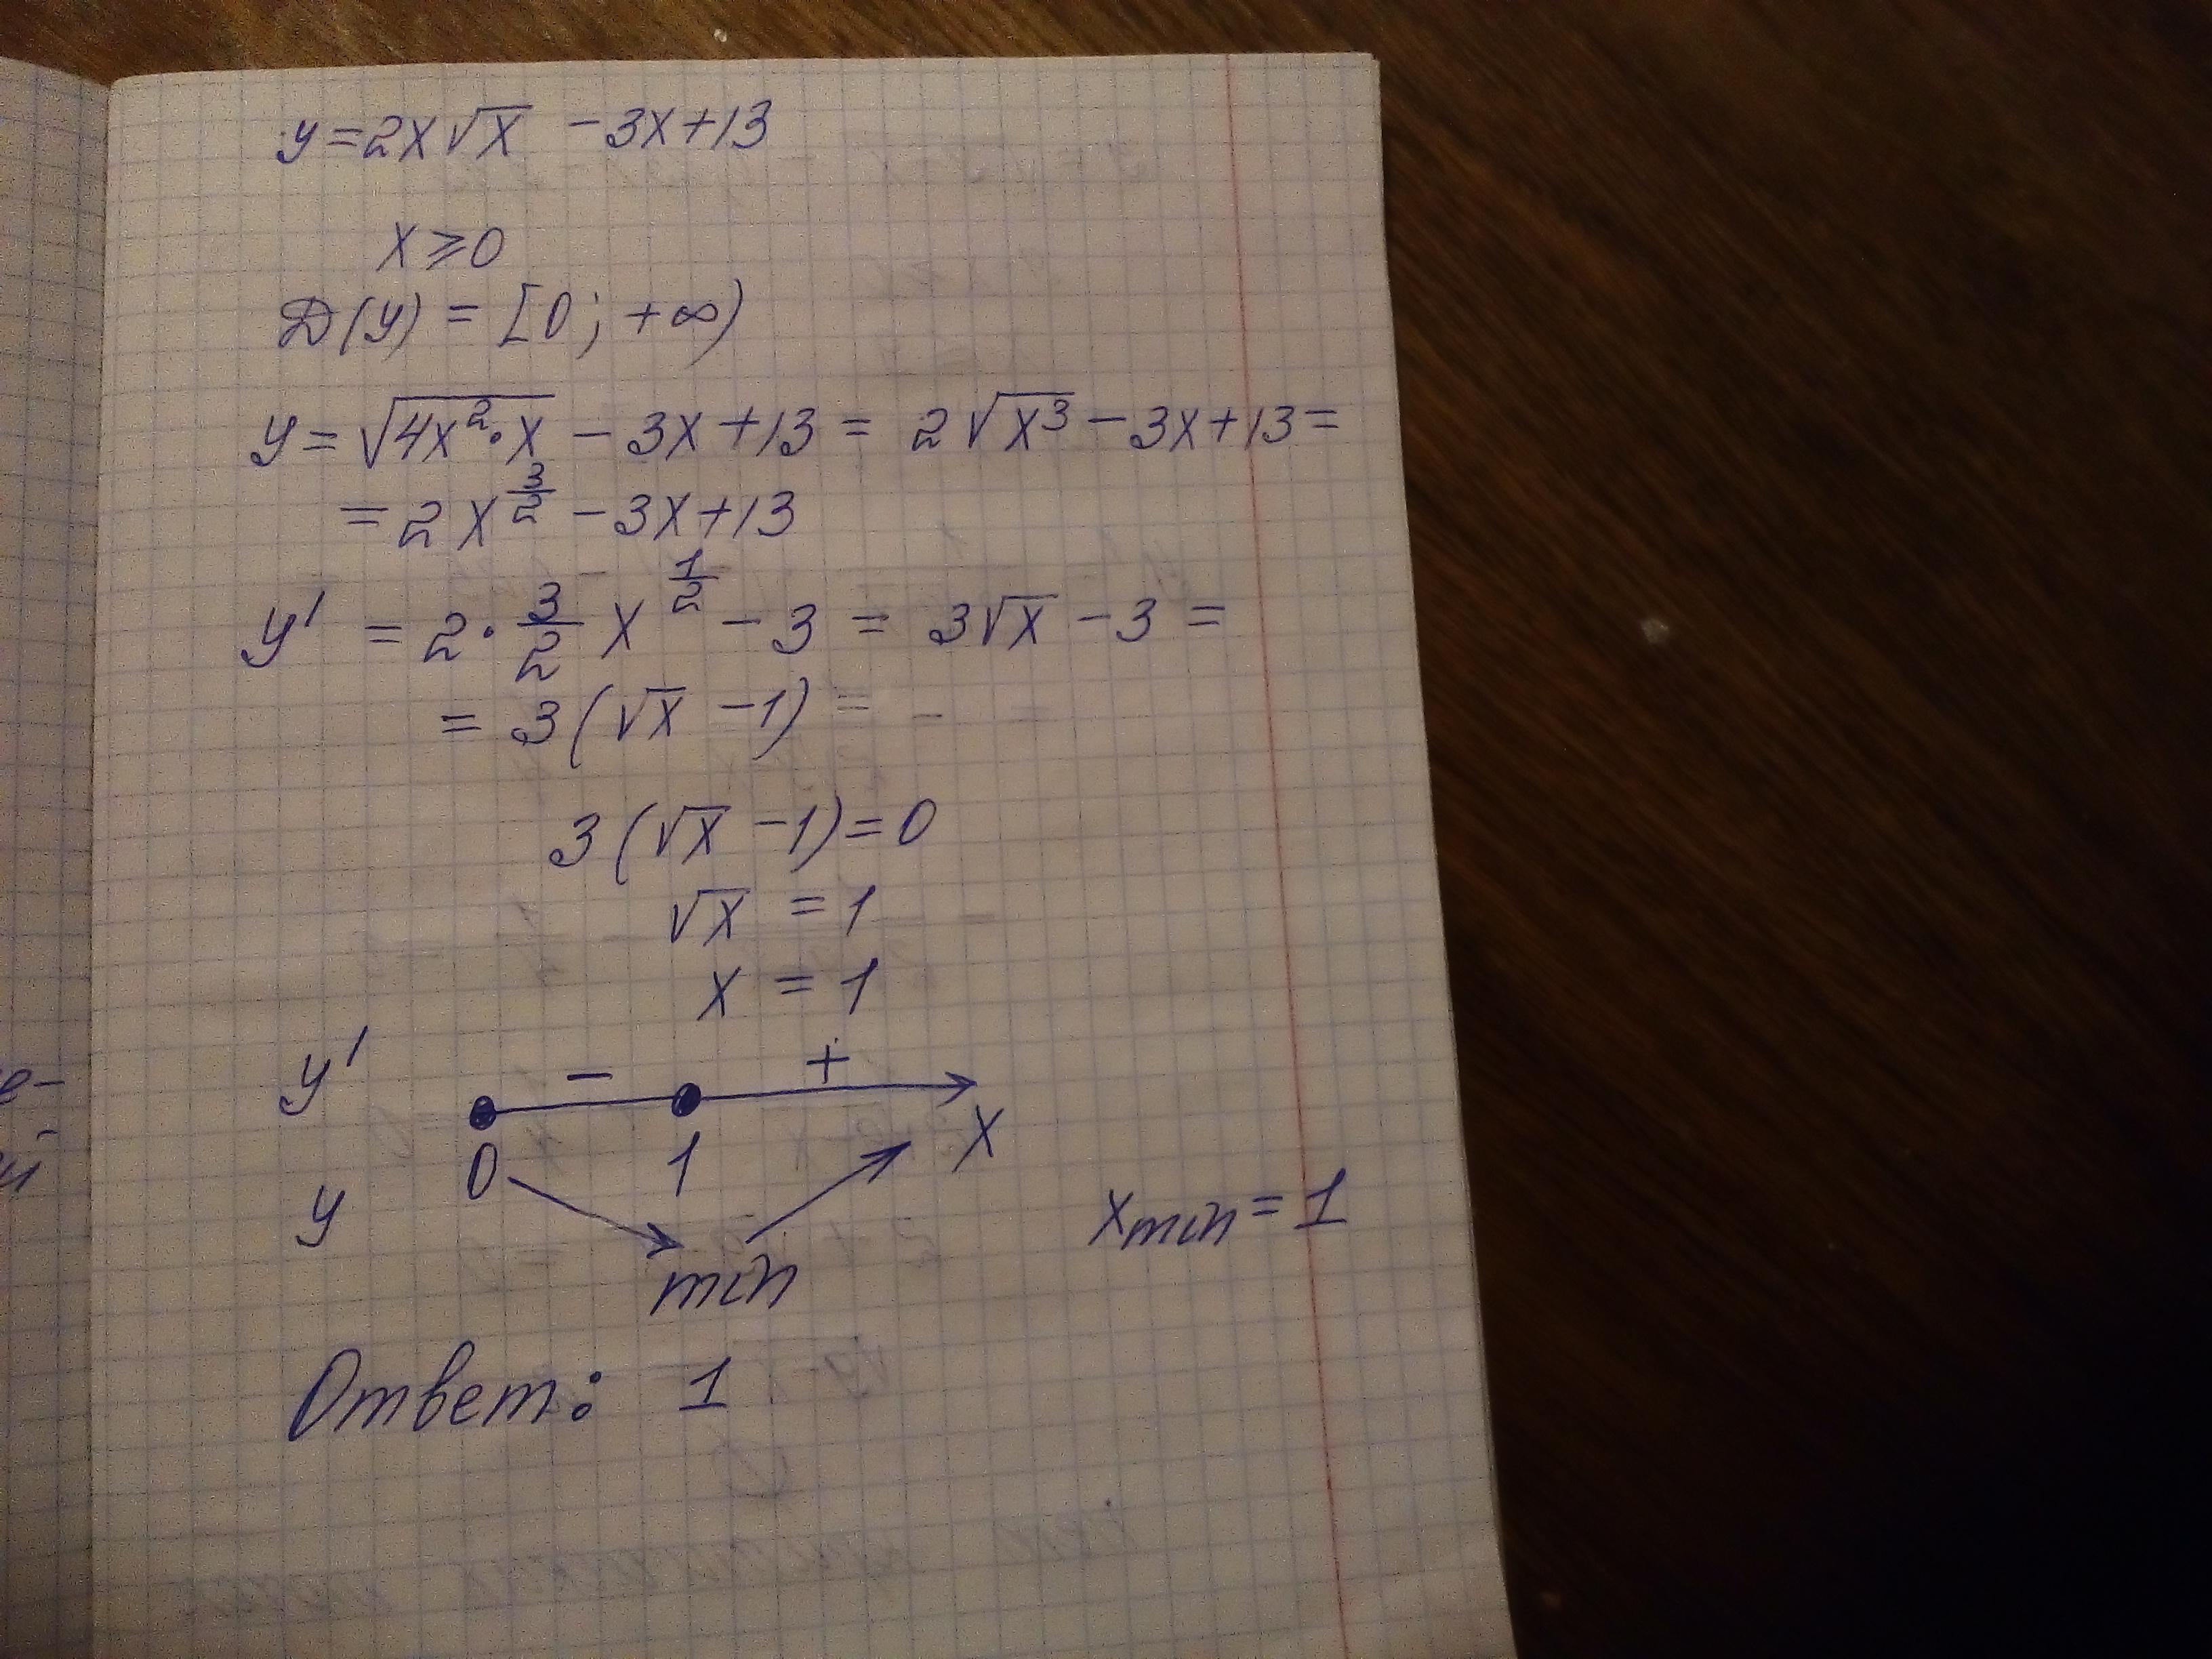 y=2x√x -3x+13
x⩾0
D(y) = [0; +∞)
y=√4x²·x -3x+13= 2√x³-3x+13=
=2x^(3/2) -3x+13
y' = 2·3/2 x^(1/2) -3 = 3√x -3 =
= 3(√x -1) =
3(√x -1)=0
√x = 1
x = 1
y' - +
0 1 x
y
min
xmin=1
Ответ: 1